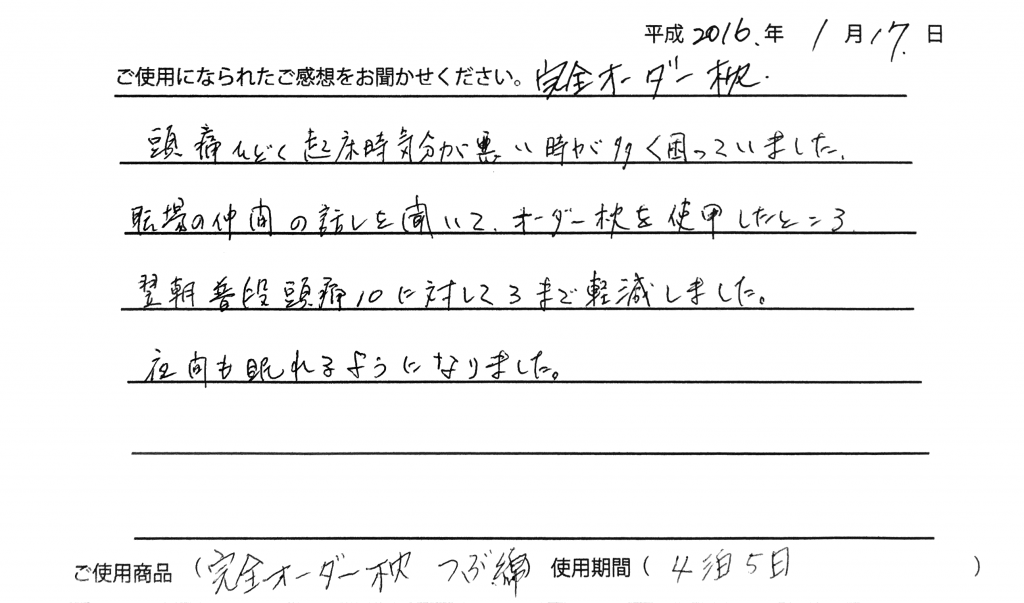 平成 2016. 年 1 月 17. 日
ご使用になられたご感想をお聞かせください。完全オーダー枕.
頭痛ひどく起床時気分が悪い時が多く困っていました.
職場の仲間の話しを聞いて.オーダー枕を使用したところ
翌朝普段頭痛10に対して3まで軽減しました。
夜間も眠れるようになりました。
ご使用商品 (完全オーダー枕 つぶ綿 使用期間 ( 4泊5日 )